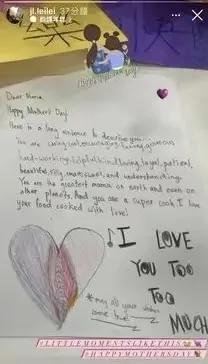 jl.leilei 37分鐘
Dear Mama,
Happy Mother's Day!
Here is a long sentence to describe you...
You are caring, encouraging, loving, generous
hard-working, helpful, kind, loving, loyal, patient,
beautiful, silly, smart, and understanding.
You are the greatest mama on earth and even on
other planets. And you are a super cook. I love
your food cooked with love!
I LOVE
YOU TOO
TOO
MUCH
*may all your wishes
come true
#LITTLEMOMENTSLIKETHIS
#HAPPYMOTHERSDAY